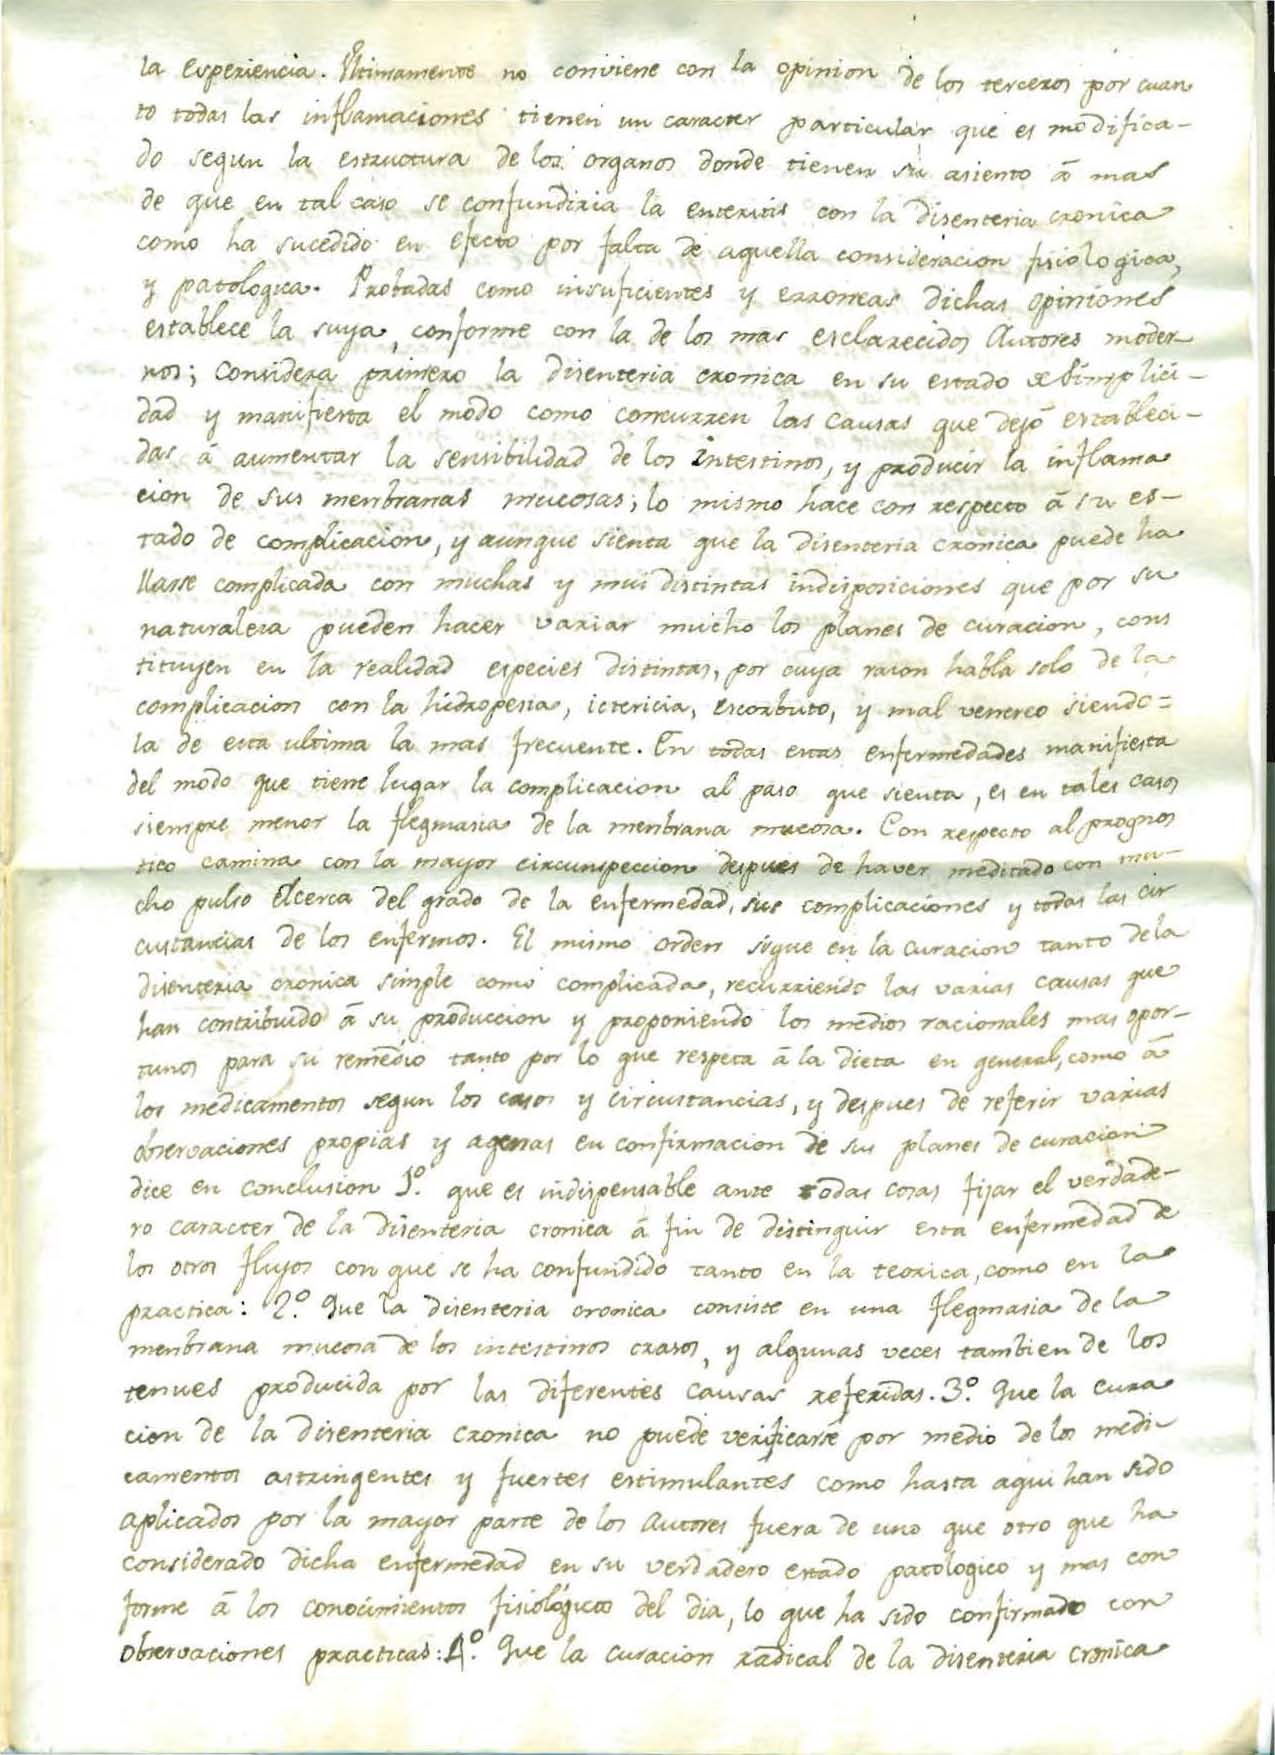 la esperiencia. Ultimamente no conviene con la opinion de los terceros por cuan
to todas las inflamaciones tienen un caracter particular que es modifica-
do segun la estructura de los organos donde tienen su asiento á mas
de que en tal caso se confundiria la enteritis con la disenteria cronica
como ha sucedido en efecto por falta de aquella consideracion fisiologica,
y patologica. Probadas como insuficientes y erroneas dichas opiniones
establece la suya, conforme con la de los mas esclarecidos Autores moder-
nos; considera primero la disenteria cronica en su estado de simplici-
dad y manifiesta el modo como concurren las causas que dejó estableci-
das á aumentar la sensibilidad de los intestinos, y producir la inflama
cion de sus menbranas mucosas; lo mismo hace con respecto á su es-
tado de complicacion, y aunque sienta que la disenteria cronica puede ha
llarse complicada con muchas y mui distintas indisposiciones que por su
naturaleza pueden hacer variar mucho los planes de curacion, cons
tituyen en la realidad especies distintas, por cuya razon habla solo de la
complicacion con la hidropesia, ictericia, escorbuto, y mal venereo siendo=
la de esta ultima la mas frecuente. En todas estas enfermedades manifiesta
del modo que tiene lugar la complicacion al paso que sienta, es en tales casos
siempre menor la flegmasia de la menbrana mucosa. Con respecto al prognos
tico camina con la mayor circunspeccion despues de haver meditado con mu-
cho pulso acerca del grado de la enfermedad, sus complicaciones y todas las cir
custancias de los enfermos. El mismo orden sigue en la curacion tanto dela
disenteria cronica simple como complicada, recurriendo las varias causas que
han contribuido á su produccion y proponiendo los medios racionales mas opor-
tunos para su remedio tanto por lo que respeta á la dieta en general, como á
los medicamentos segun los casos y circustancias, y despues de referir varias
observaciones propias y agenas en confirmacion de sus planes de curacion
dice en conclusion 1º. que es indispensable ante todas cosas fijar el verdade-
ro caracter de la disenteria cronica á fin de distinguir esta enfermedad de
los otros flujos con que se ha confundido tanto en la teorica, como en la
practica: 2º. Que la disenteria cronica consiste en una flegmasia de la
menbrana mucosa de los intestinos crasos, y algunas veces tambien de los
tenues producida por las diferentes causas referidas. 3º. Que la cura
cion de la disenteria cronica no puede verificarse por medio de los medi
camentos astringentes y fuertes estimulantes como hasta aqui han sido
aplicados por la mayor parte de los Autores fuera de uno que otro que ha
considerado dicha enfermedad en su verdadero estado patologico y mas con
forme á los conocimientos fisiológicos del dia, lo que ha sido confirmado con
observaciones practicas: 4º. Que la curacion radical de la disenteria cronica